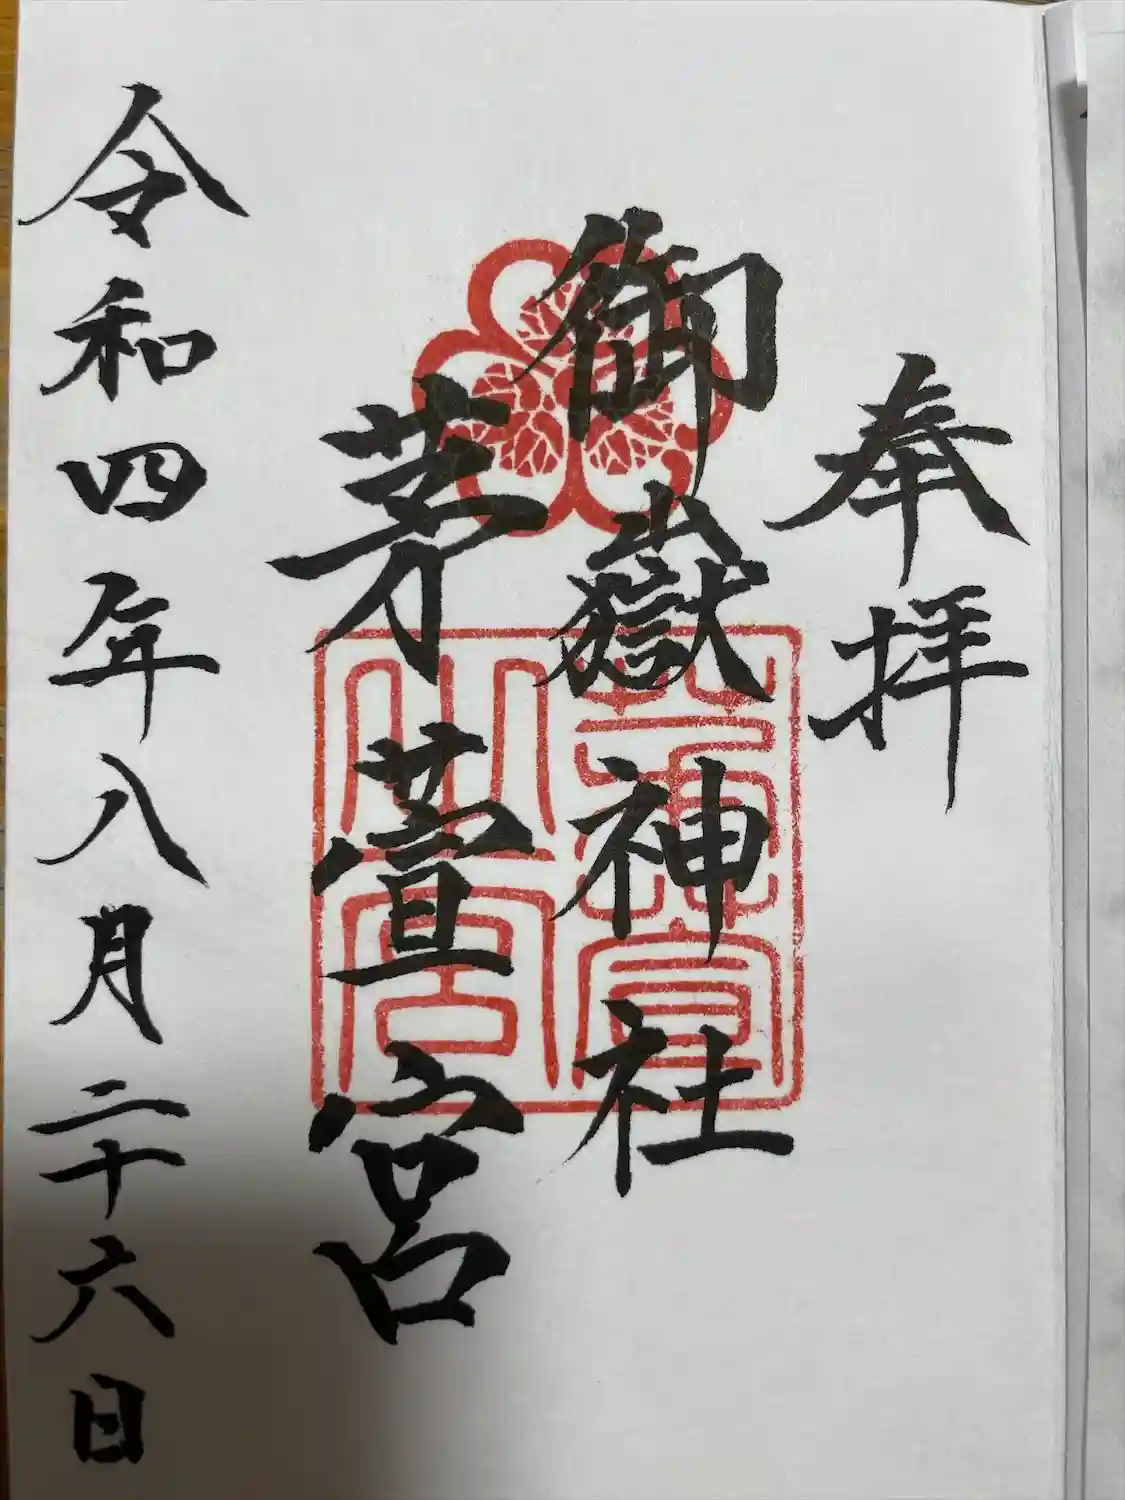 奉拝
御嶽神社
茅萱宮
令和四年八月二十六日